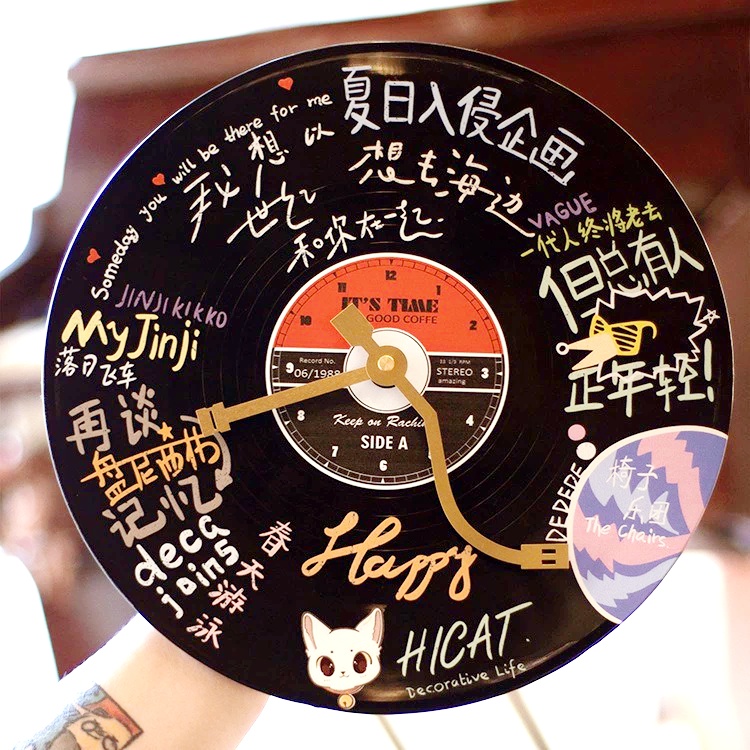 Someday you will be there for me
夏日入侵企画
我想以
世纪
和你在一起
想去海边
VAGUE
一代人终将老去
但总有人
正年轻!
JINJIKIKKO
My Jinji
落日飞车
再谈
记忆
deca
joins
春天游泳
12
11
1
10
2
9
3
8
4
7
5
6
IT'S TIME
GOOD COFFE
Record No.
06/1988
33 1/3 RPM
STEREO
amazing
Keep on Rachi
SIDE A
DEDEDE
椅子
乐团
The Chairs
Happy
HICAT.
Decorative Life